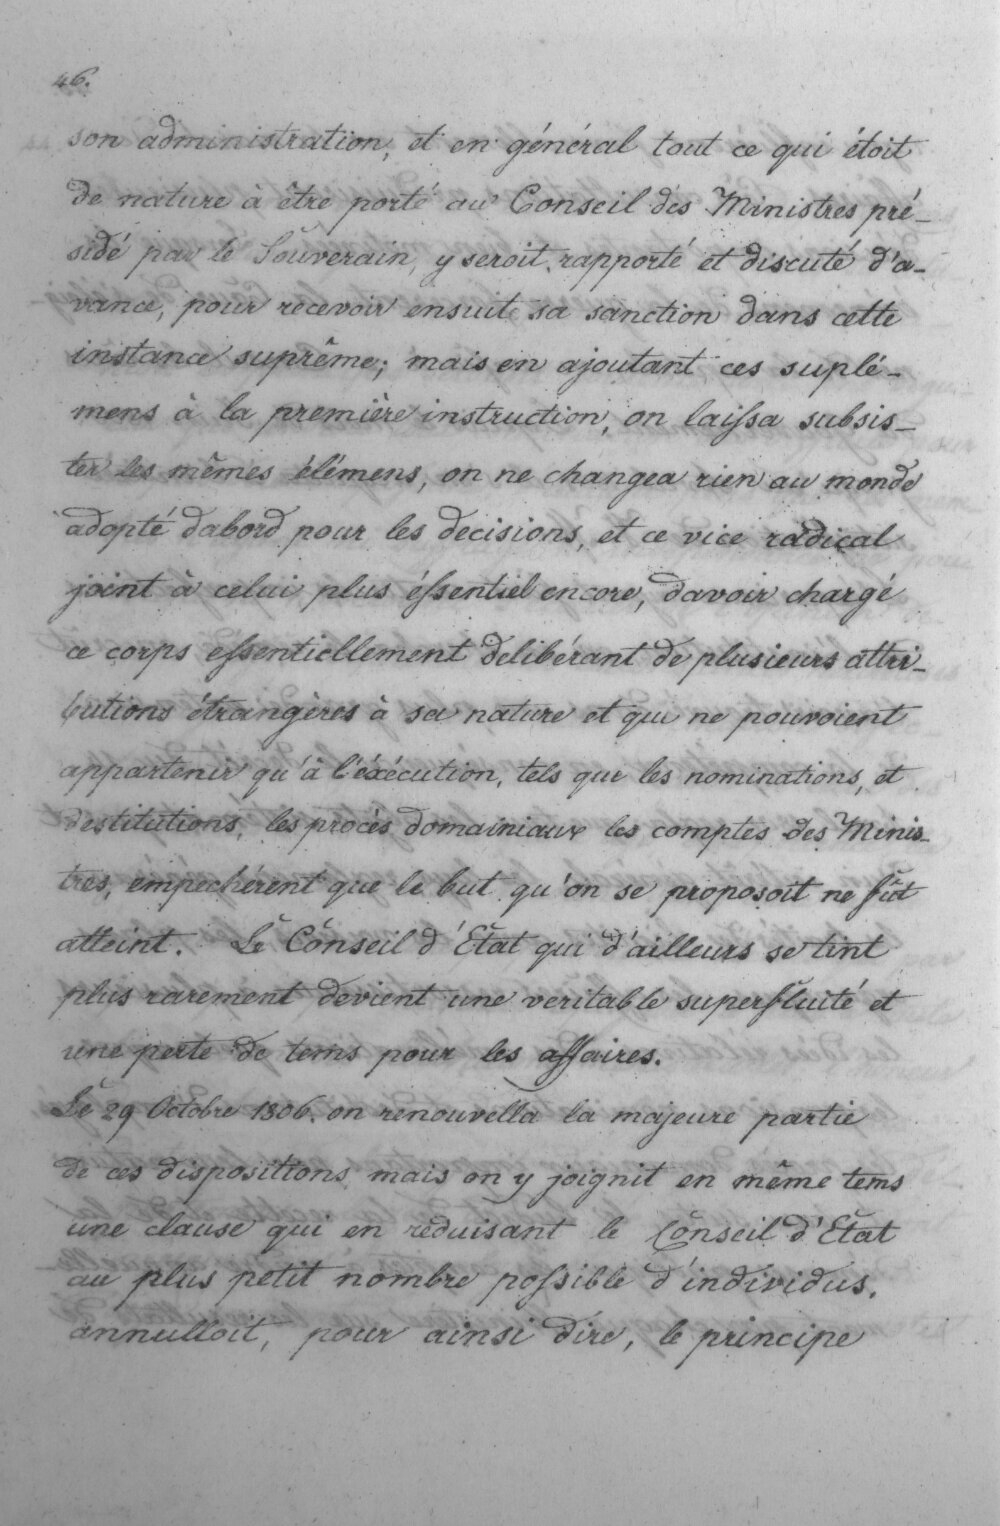 46.
son administration, et en général tout ce qui étoit
de nature à être porté au Conseil des Ministres pré-
sidé par le Souverain, y seroit rapporté et discuté d'a-
vance, pour recevoir ensuite sa sanction dans cette
instance suprême; mais en ajoutant ces suplé-
mens à la première instruction, on laissa subsis-
ter les mêmes élémens, on ne changea rien au monde
adopté dabord pour les decisions, et ce vice radical
joint à celui plus éssentiel encore, davoir chargé
ce corps essentiellement delibérant de plusieurs attri-
butions étrangères à sa nature et qui ne pouvoient
appartenir qu'à l'éxécution, tels que les nominations, et
destitutions, les procès domainiaux les comptes des Minis-
tres, empechérent que le but qu'on se proposoit ne fût
atteint. Le Conseil d'Etat qui d'ailleurs se tint
plus rarement devient une veritable superfluité et
une perte de tems pour les affaires.
Le 29 Octobre 1806. on renouvella la majeure partie
de ces dispositions mais on y joignit en même tems
une clause qui en réduisant le Conseil d'Etat
au plus petit nombre possible d'individus.
annulloit, pour ainsi dire, le principe